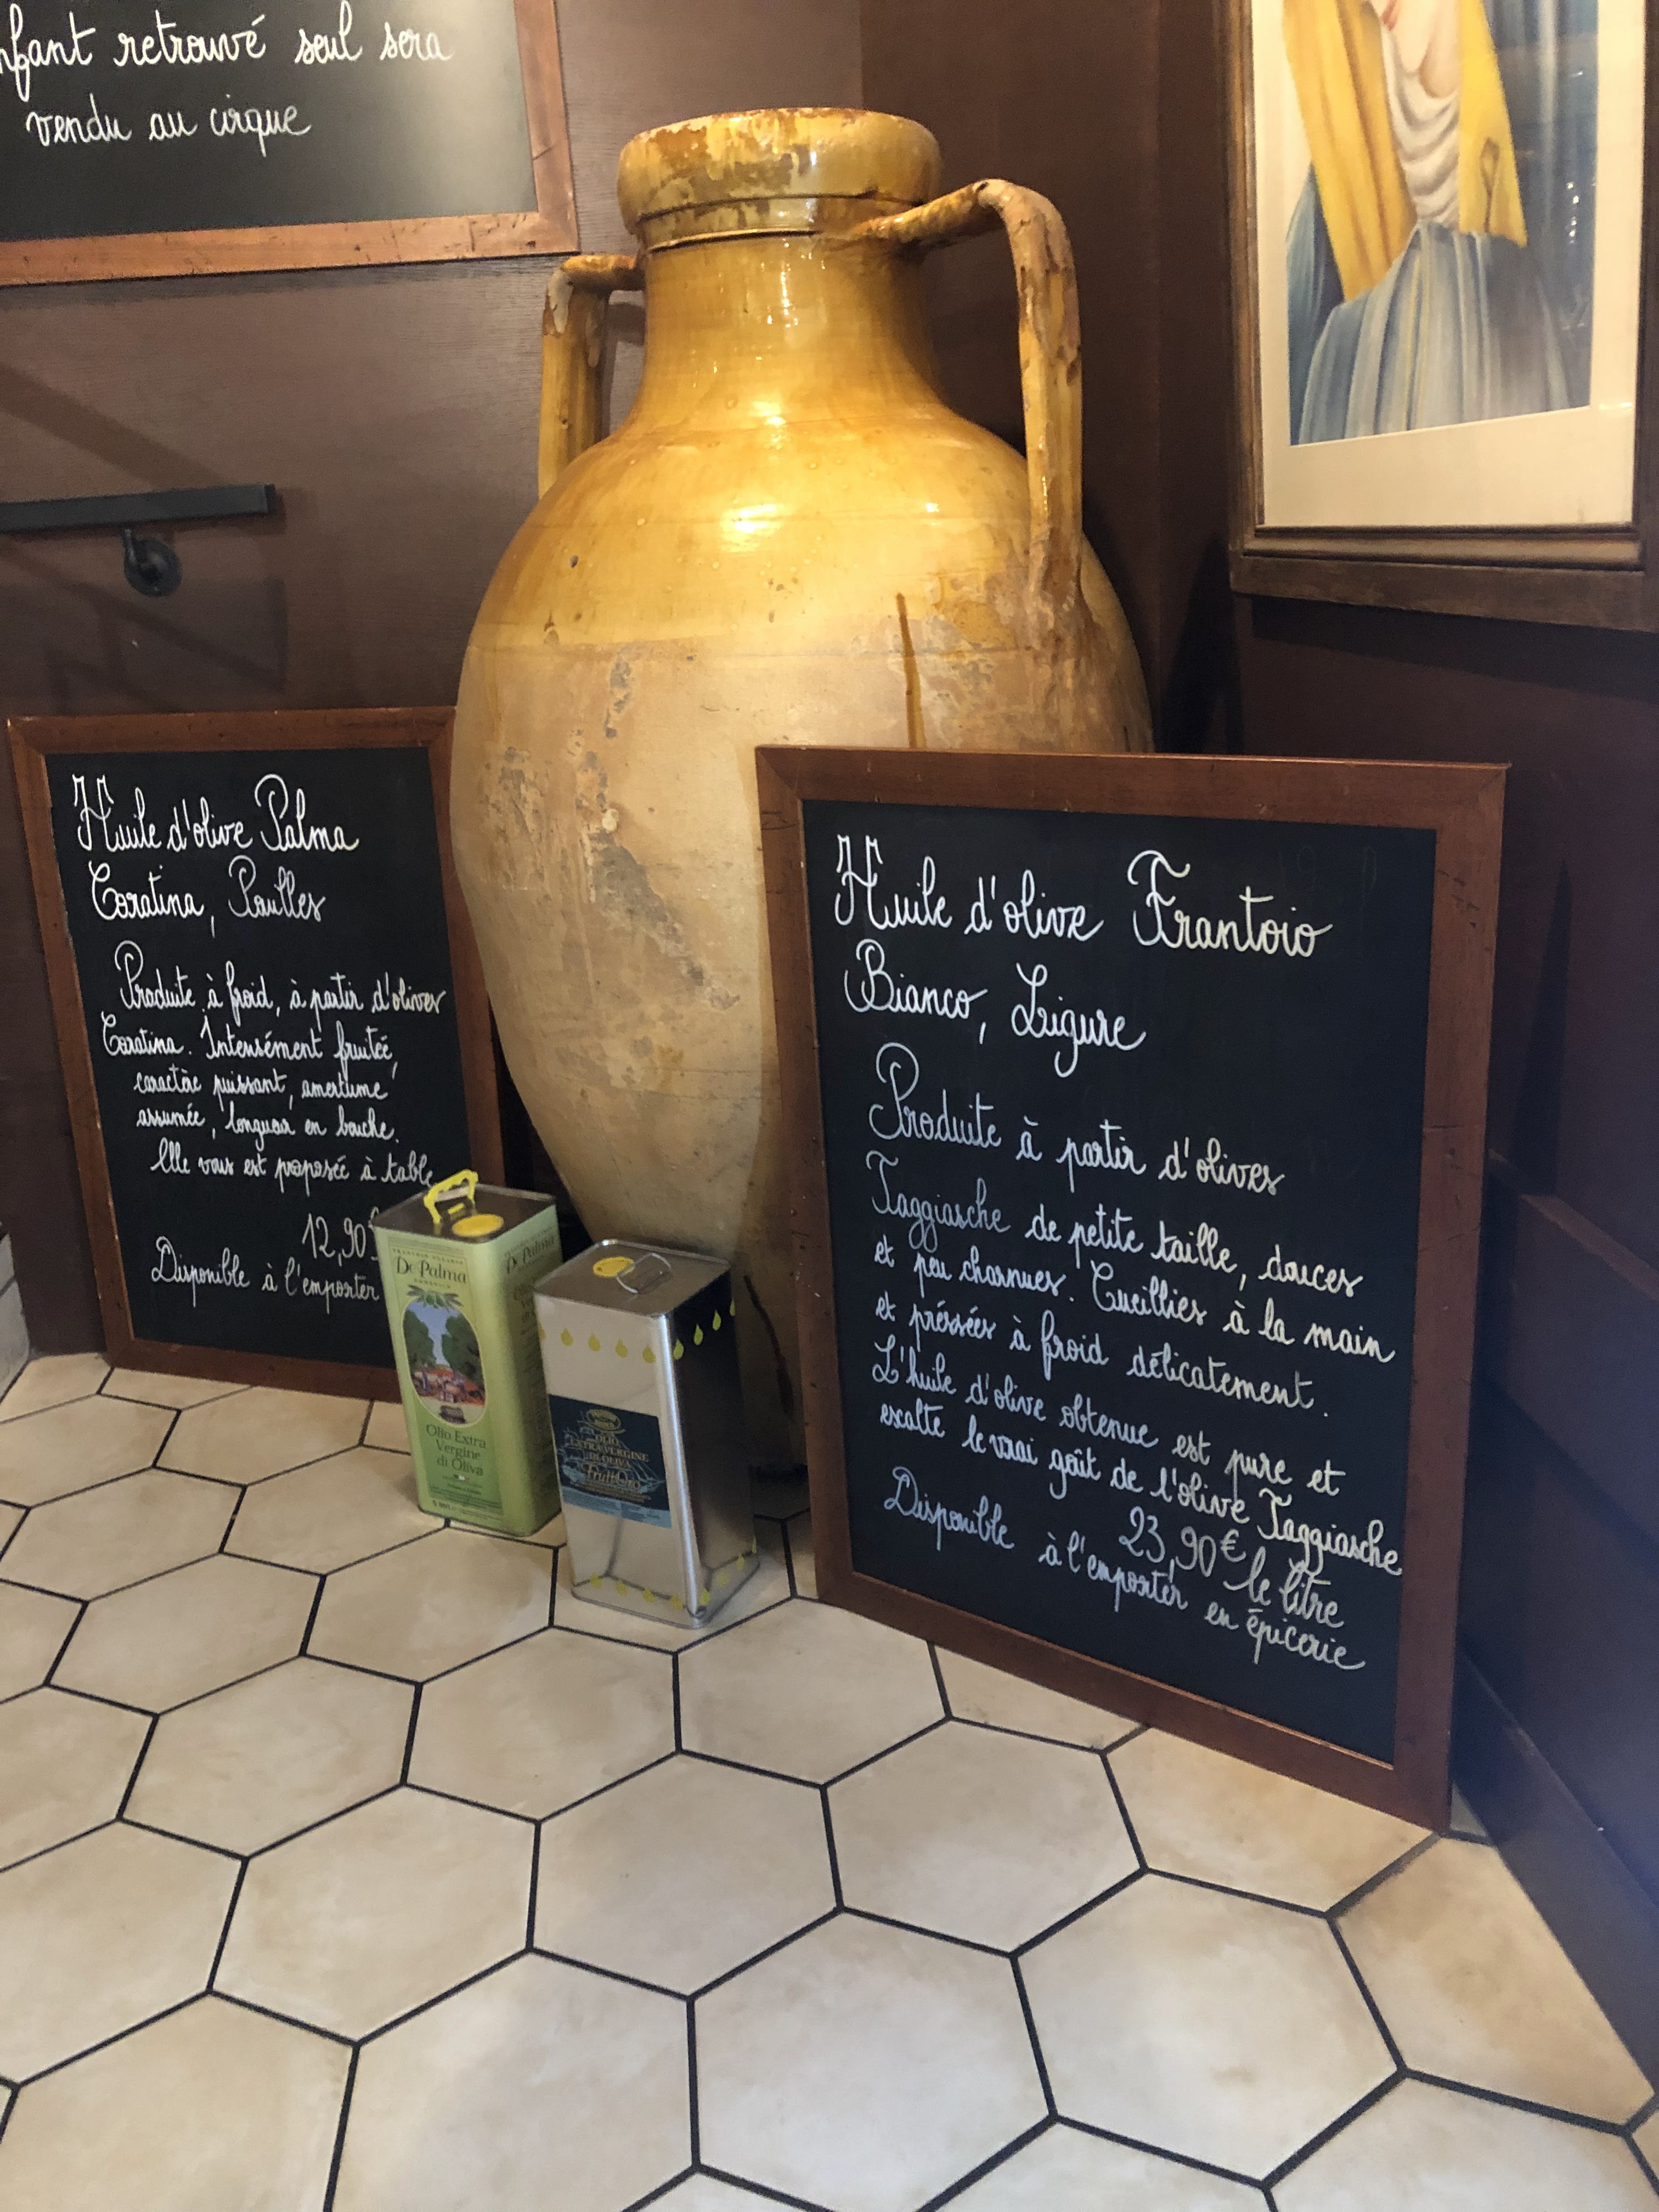 enfant retrouvé seul sera
vendu au cirque
Huile d'olive Palma
Coratina, Pouilles
Produite à froid, à partir d'olives
Coratina. Intensément fruitée,
caractère puissant, amertume
assumée, longueur en bouche.
Elle vous est proposée à table
12,90€
Disponible à l'emporter
De Palma
Olio Extra
Vergine
di Oliva
De Palma
OLIO
EXTRA VERGINE
DI OLIVA
FruttOro
Huile d'olive Frantoio
Bianco, Ligure
Produite à partir d'olives
Taggiasche de petite taille, douces
et peu charnues. Cueillies à la main
et préssées à froid délicatement.
L'huile d'olive obtenue est pure et
exalte le vrai goût de l'olive Taggiasche
23,90€ le litre
Disponible à l'emporter en épicerie